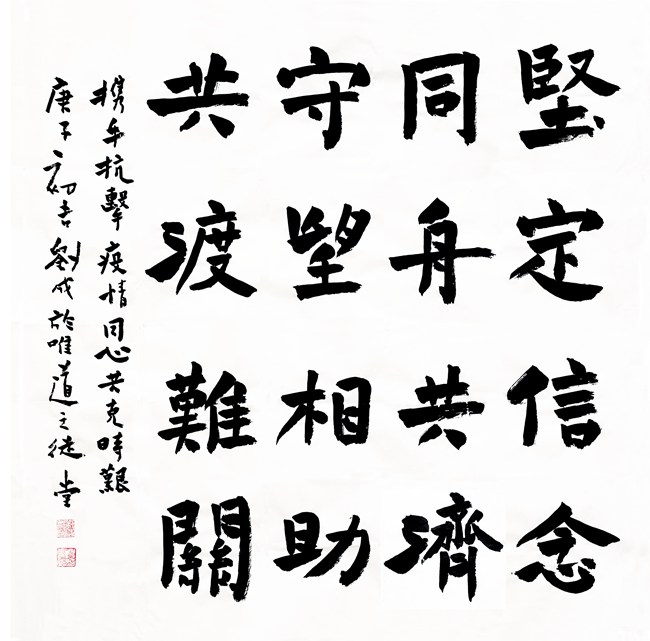 堅定信念
同舟共濟
守望相助
共渡難關
携手抗擊疫情同心共克時艱
庚子初吉劉成於唯道之徒堂